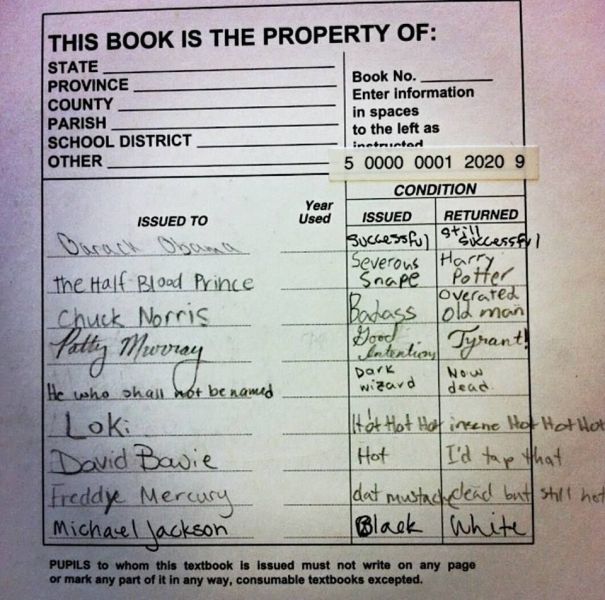 THIS BOOK IS THE PROPERTY OF:
STATE
PROVINCE
COUNTY
PARISH
SCHOOL DISTRICT
OTHER
Book No.
Enter information
in spaces
to the left as
instructed
5 0000 0001 2020 9
CONDITION
ISSUED TO Year Used ISSUED RETURNED
Barack Obama successful still successful
the Half Blood Prince Severous Snape Harry Potter
Chuck Norris Badass Overated old man
Patty Murray Good Intentions Tyrant!
He who shall not be named Dark wizard Now dead.
Loki Hot Hot Hot insene Hot Hot Hot
David Bowie Hot I'd tap that
Freddye Mercury dat mustache dead but still hot
Michael Jackson Black White
PUPILS to whom this textbook is issued must not write on any page
or mark any part of it in any way, consumable textbooks excepted.